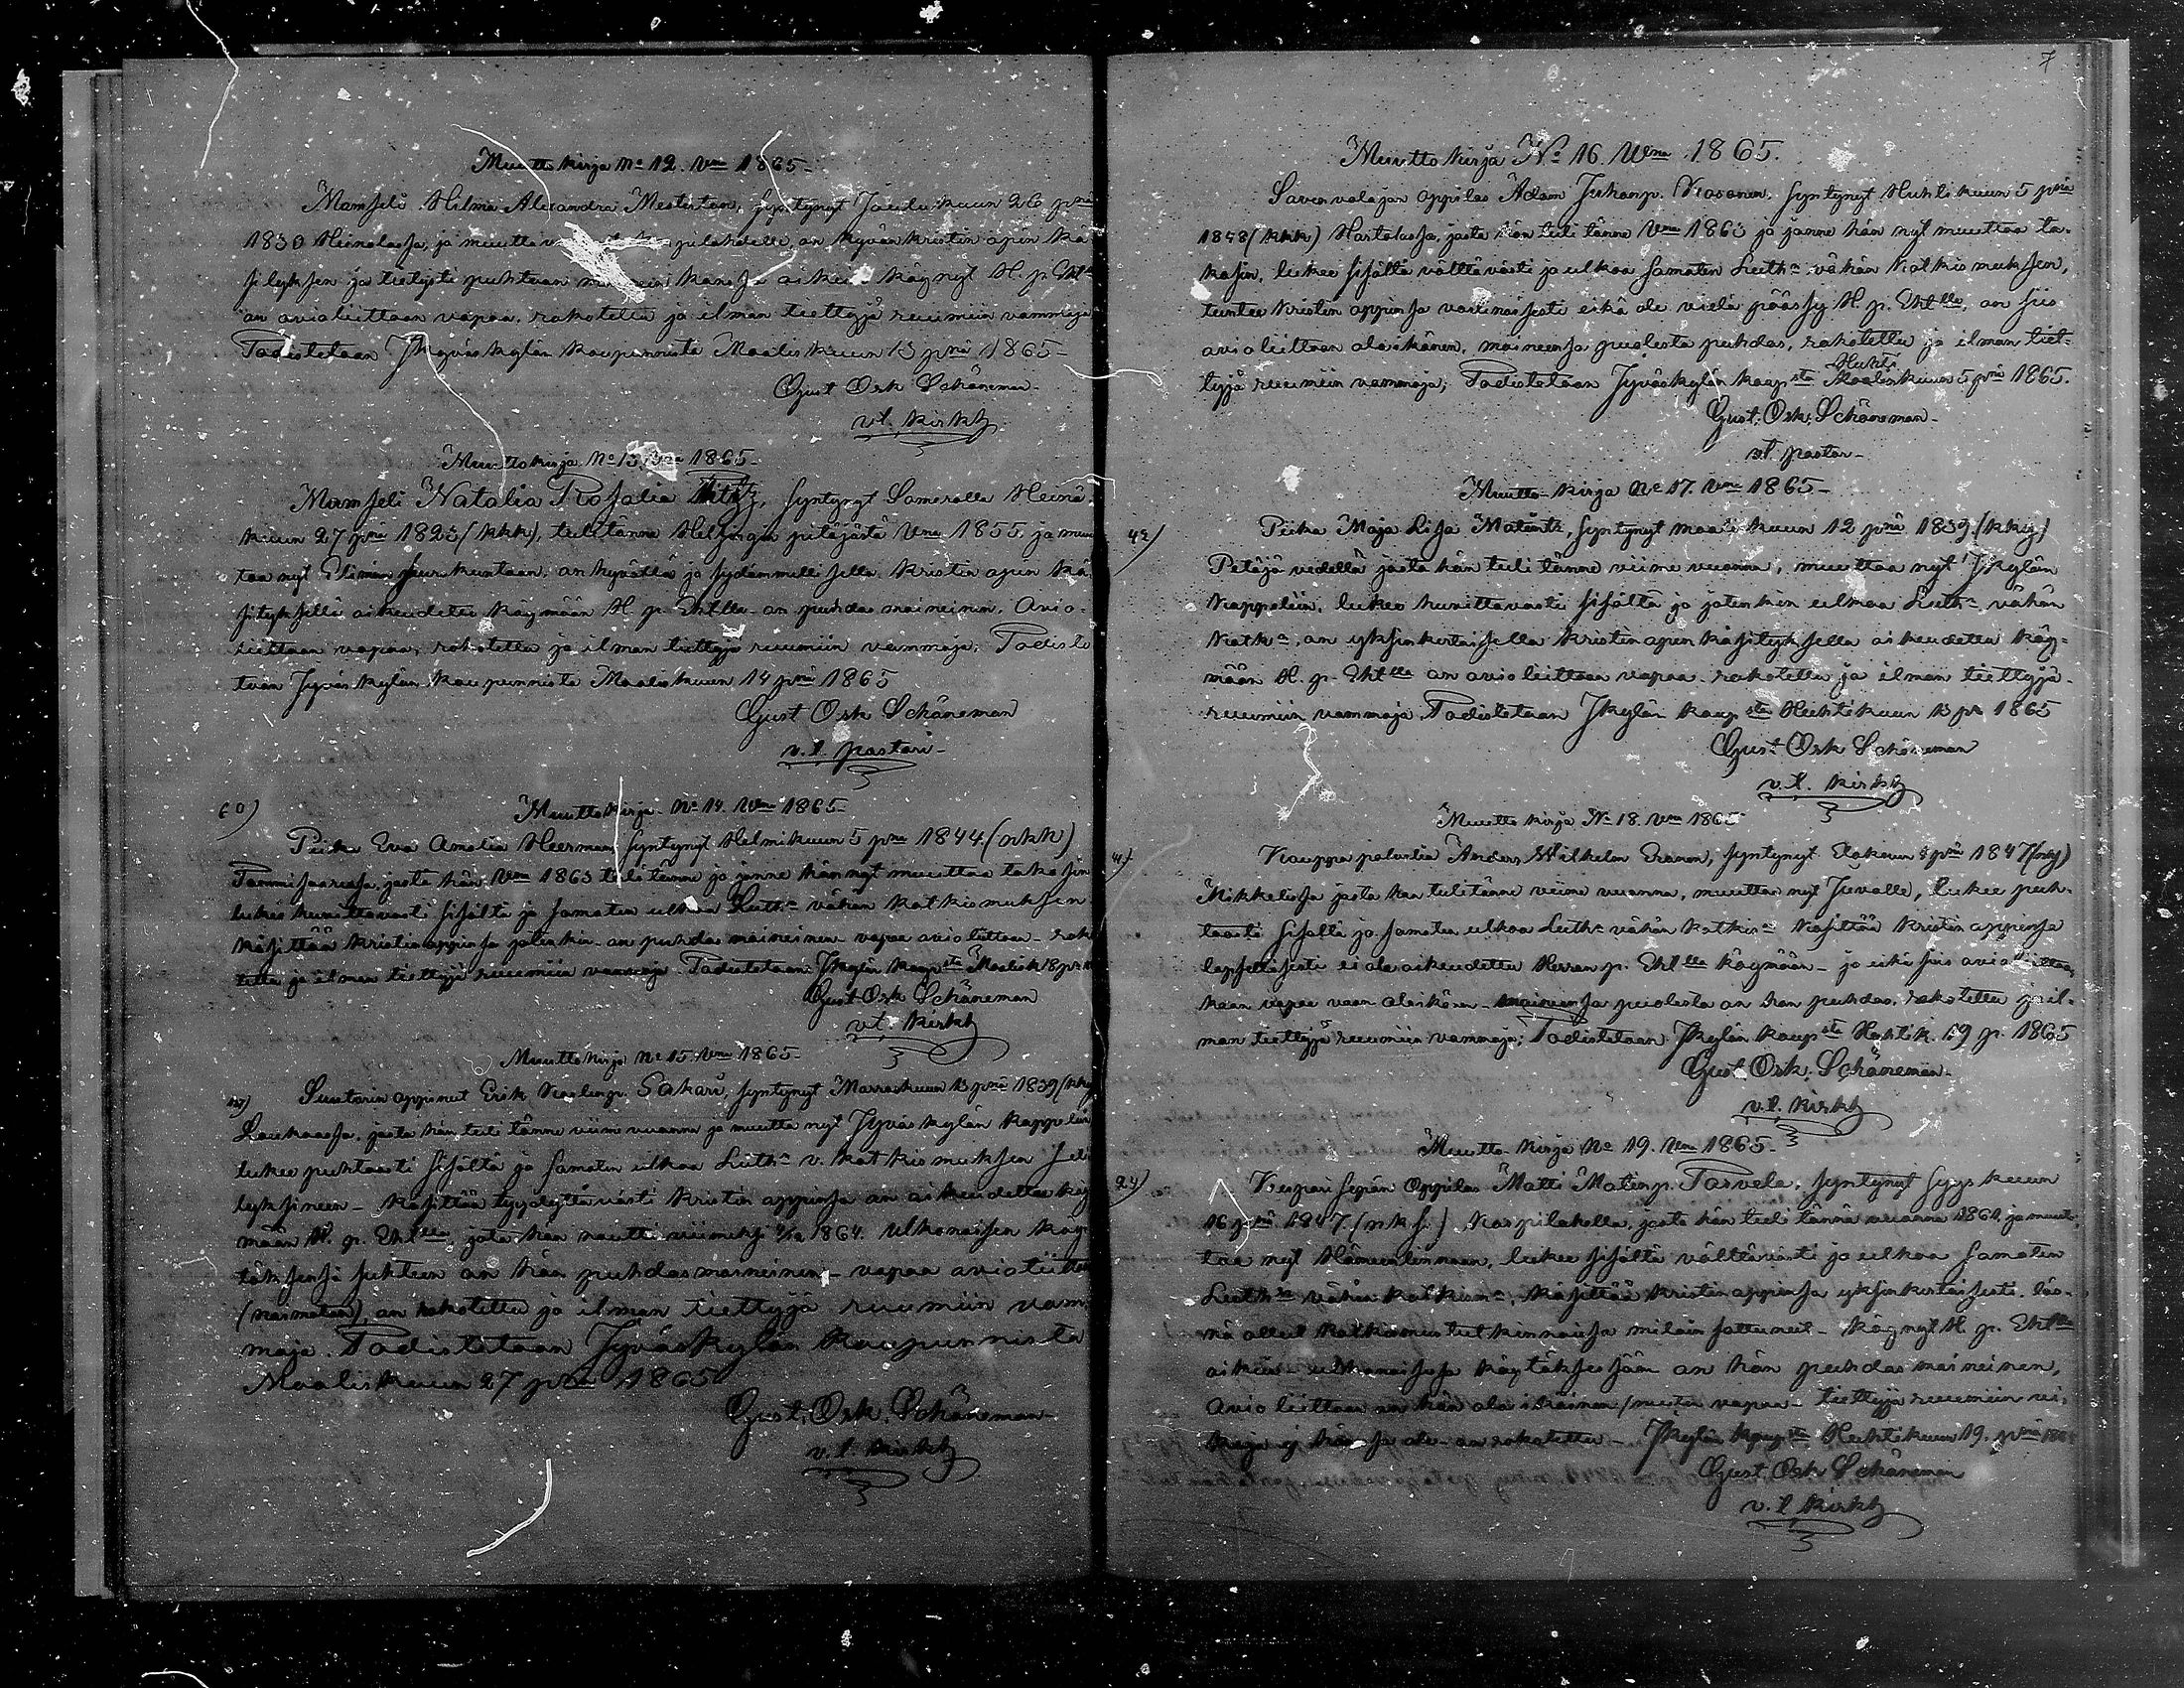 Muuttokirja No 12. Vna 1865.
Mamseli Hilma Alexandra Mesterton, syntynyt Joulukuun 26 pnä
1830 Heinolassa, ja muuttava pilahdelle, on hyvän kristin opin kä-
silyksen ja tietysti puhtaan maineen kansa aikein käynyt H. p. Ehtlla
on avioliittoon vapaa, rokotettu ja ilman tiettyjä ruumiin vammoja
Todistetaan Jyväskylän kaupunnista Maaliskuun 13 pnä 1865
Gust Osk Schöneman
v.t. kirkh
Muuttokirja No 13 Vna 1865
Mamseli Natalia Rosalia syntynyt Somerolla Heinä-
kuun 27 pnä 1823 (kkk), tuli tänne Helsingin pitäjästä Vna 1855 ja muut
taa nyt Elimän seurakuntaan, on hyvällä ja sydämmellisellä kristin opin kä-
sityksellä oikeudettu käymään H. p. Ehtlla on puhdas maineinen, Avio-
liittoon vapaa, rokotettu ja ilman tiettyjä ruumiin vammoja; Todiste
taan Jyväskylän kaupunnista Maaliskuun 14 pnä 1865
Gust Osk Schöneman
v.t. pastori
60) Muuttokirja No 14. Vna 1865
Piika Eva Amalia Heerman syntynyt Helmikuun 5 pnä 1844.
Tammisaaressa, josta hän Vna 1863 tuli tänne ja jonne hän nyt muuttaa takasin
lukee kunittavasti sisältä ja samaten ulkoa Luth. vähän katkismuksen
käsittää kristinoppinsa jotenkin on puhdas maineinen vapaa avioliittoon rok
tettu ja ilman tiettyjä ruumiin vammoja. Todistetaan Jkylän kaupsta Maalisk 18 p
Gust Osk Schöneman
v.t. kirkh
Muuttokirja No 15 Vna 1865.
Suutarin oppinut Erik Karlinp. Sakari, syntynyt Marraskuun 13 pnä 1839
Laukaassa, josta hän tuli tänne viime vuonna ja muutta nyt Jyväskylän kappeliin
lukee puhtaasti sisältä ja samaten ulkoa Luth. v. katkismuksen seli
tyksineen - käsittää tyydyttävästi kristin oppinsa on oikeudettu käy
mään H. p. Ehtlla, jota hän nautti viimeksi 1864. Ulkonaisen käy
töksensä suhteen on hän puhdas maineinen - vapaa avioliittoon
(naimaton), on rokotettu ja ilman tiettyjä ruumiin vam
moja. Todistetaan Jyväskylän kaupunnista
Maaliskuun 27 pnä 1865
Gust. Osk. Schöneman
v.t. kirkh
7
Muuttokirja No 16 Vna 1865.
Savenvalajan oppilas Adam Juhanp. Kosonen, syntynyt Huhtikuun 5 pnä
1848 (kkk) Hartolassa, josta hän tuli tänne Vna 1863 ja jonne hän nyt muuttaa ta-
kasin, lukee sisältä välttävästi ja ulkoa samaten Luth. vähän Katkismuksen,
tuntee kristin oppinsa vaillinaisesti eikä ole vielä päässy H. p. Ehtlle, on siis
avioliittoon alaikänen, maineensa puolesta puhdas, rokotettu ja ilman tiet-
tyjä ruumiin vammoja; Todistetaan Jyväskylän kaupsta Huhti Maaliskuun 5 pnä 1865.
Gust. Osk. Schöneman
vt pastor
Muutto-kirja No 17. Vna 1865
42) Piika Maja Lisa Matintr, syntynyt maaliskuun 12 pnä 1839
Petäjävedellä josta hän tuli tänne viime vuonna, muuttaa nyt Jkylän
Kappeliin, lukee kunittavasti sisältä ja jotenkin ulkoa Luth. vähän
Katk., on yksinkertaisella kristin opin käsityksellä oikeudettu käy-
mään H. p. Ehtlla on avioliittoon vapaa rokotettu ja ilman tiettyjä
ruumiin vammoja. Todistetaan Jkylän kaupsta Huhtikuun 13 p. 1865
Gust Osk Schöneman
v.t. kirkh
Muutto kirja No 18. Vna 1865
Kauppapalvelia Anders Wilhelm Eronen, syntynyt Elokuun 8 pnä 1847
Mikkelissä josta hän tuli tänne viime vuonna, muuttaa nyt Juvalle, lukee puh-
taasti sisältä ja samaten ulkoa Luth. vähän katkis. Käsittää kristin oppinsa
lapsellisesti ei ole oikeudettu Herran p. Ehtlla käymään - ja eikä siis avioliittoon
kaan vapaa vaan alaikänen - maineensa puolesta on hän puhdas, rokotettu ja il-
man tiettyjä ruumiin vammoja; Todistetaan Jkylän kaupsta Huhtik. 19 p. 1865
Gust. Osk. Schöneman
v.t. kirkh
Muutto-kirja No 19. Vna 1865.
24) Kuparisepän Oppilas Matti Matinp. Torvela, syntynyt Syyskuun
16 pnä 1847. Kospilahella, josta hän tuli tännä vuonna 1861, ja muut-
taa nyt Hämeenlinnaan, lukee sisältä välttävästi ja ulkoa samaten
Luth. vähän katkism., käsittää kristin oppinsa yksinkertaisesti, läs-
nä ollut katkismustutkinnoissa milloin sattunut - käynyt H. p. Ehtlla
aikein - ulkonaisessa käytöksessään on hän puhdas maineinen,
Avioliittoon on hän alaikäinen/muuten vapaa - tiettyjä ruumiin vi-
koja ej hänessä ole - on rokotettu - Jkylän kaupsta Huhtikuun 19. pnä 1865
Gust. Osk Schöneman
v.t kirkh